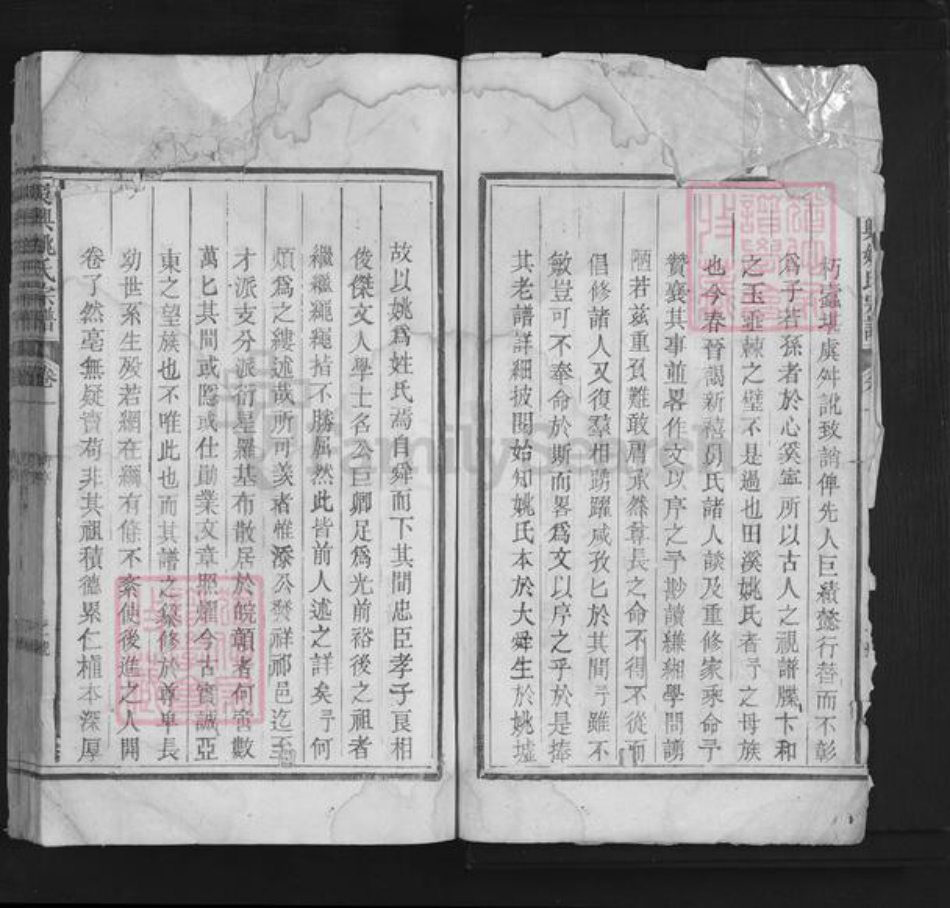 朽蠹堪虞舛訛致誚俾先人巨績懿行善而不彰
爲子若孫者於心奚寧所以古人之視譜牒卞和
之玉垂棘之璧不是過也田溪姚氏者予之母族
也今春晉謁新禧舅氏諸人談及重修家乘命予
贊襄其事並畧作文以序之予尠讀縑緗學問謭
陋若茲重負難敢肩承然尊長之命不得不從而
倡修諸人又復羣相踴躍咸孜匕於其間予雖不
敏豈可不奉命於斯而畧爲文以序之乎於是捧
其老譜詳細披閱始知姚氏本於大舜生於姚墟
故以姚爲姓氏焉自舜而下其間忠臣孝子良相
俊傑文人學士名公巨卿足爲光前裕後之祖者
繼繼繩繩指不勝屈然此皆前人述之詳矣予何
煩爲之縷述哉所可羨者惟添公發祥祁邑迄至
才派支分派衍星羅基布散居於皖贛者何啻數
萬匕其間或隱或仕勛業文章照耀今古實誠亞
東之望族也不唯此也而其譜之纂修於尊卑長
幼世系生殁若網在綱有條不紊使後進之人開
卷了然毫無疑竇苟非其祖積德累仁植本深厚
興姚氏宗譜
卷
姚氏宗譜
FamilySearch